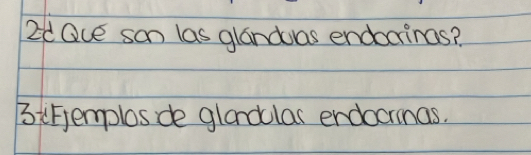 2-¿Qué son las glándulas endocrinas?
3-¿Ejemplos de glandulas endocrinas.